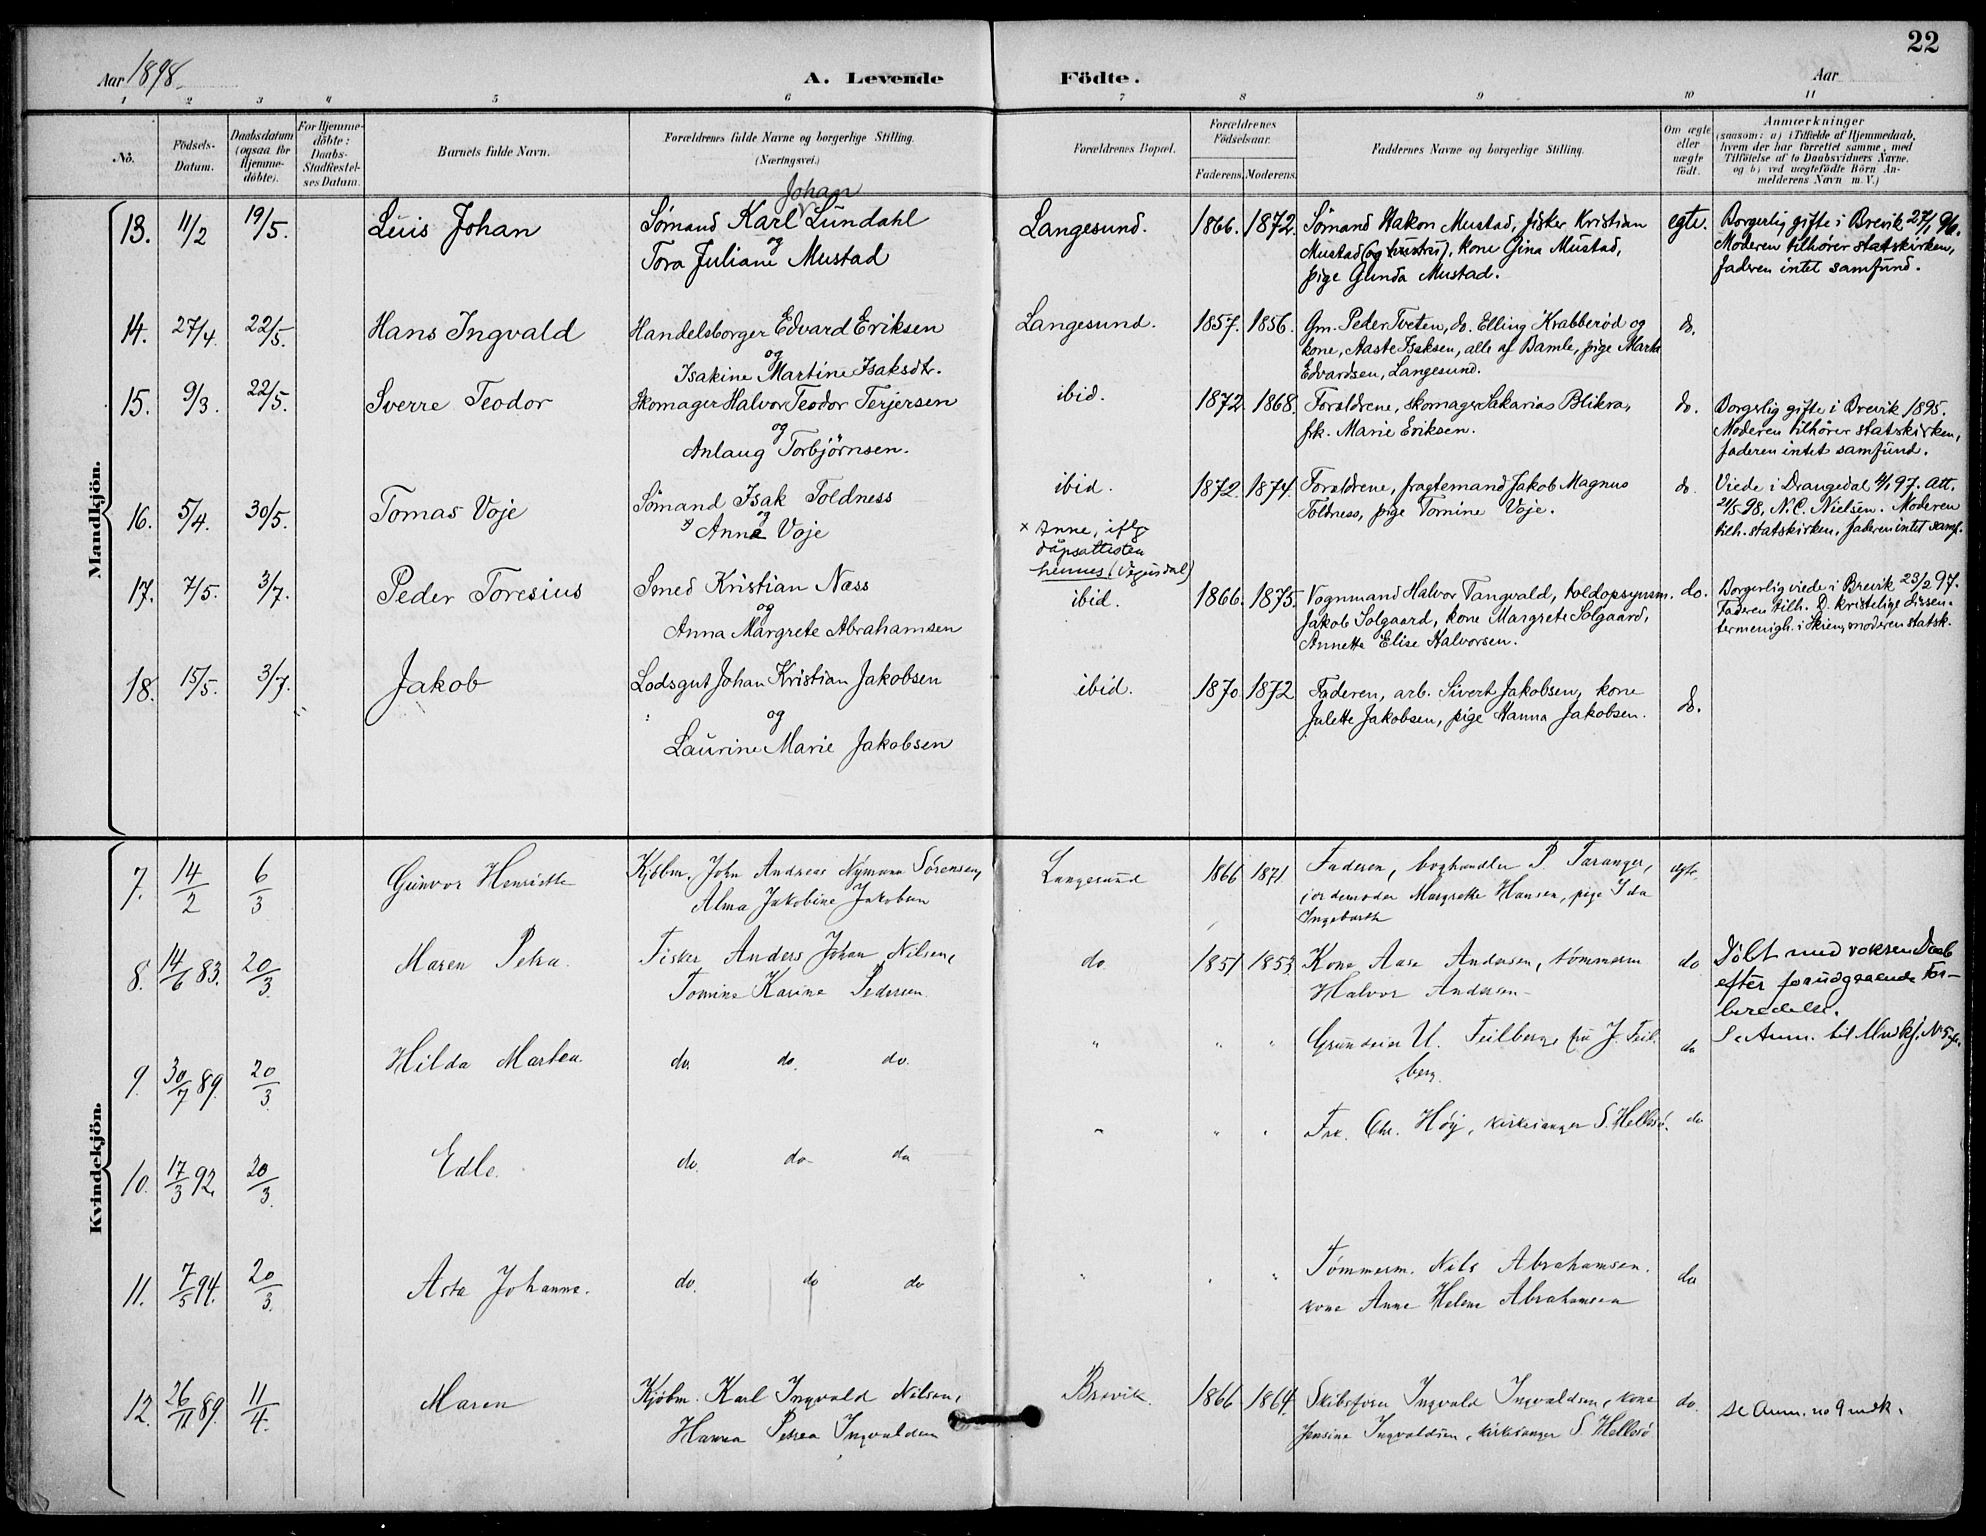 22
Aar 1898.
A. Levende Födte.
Aar
1 2 3 4 5 6 7 8 9 10 11
No.
Födsels-Datum.
Daabsdatum (ogsaa for Hjemme-döbte).
For Hjemme-döbte: Daabs-Stadfæstel-ses Datum.
Barnets fulde Navn.
Forældrenes fulde Navne og borgerlige Stilling. (Næringsvei.)
Forældrenes Bopæl.
Forældrenes Födselsaar.
Faderens. Moderens.
Faddernes Navne og borgerlige Stilling.
Om ægte eller uægte födt.
Anmærkninger
(saasom: a) i Tilfælde af Hjemmedaab,
hvem der har forrettet samme, med
Tilföielse af to Daabsvidners Navne.
og b) ved uægtefödte Börn An-
melderens Navn m. V.)
Mandkjön.
13. 11/2 19/5. Luis Johan
Johan
Sømand Karl Lundahl
og
Tora Juliane Mustad
Langesund. 1866. 1872.
Sømand Hakon Mustad, fisker Kristian
Mustad (og hustru), kone Gina Mustad,
pige Glinda Mustad.
egte.
Borgerlig gifte i Brevik 27/1 96.
Moderen tilhører statskirken,
faderen intet samfund.
14. 27/4. 22/5. Hans Ingvald
Handelsborger Edvard Eriksen
og
Isakine Martine Isaksdtr.
Langesund. 1857. 1856.
Gm. Peder Tveten, do. Elling Krabberød og
kone, Aaste Isaksen, alle af Bamle, pige Marta
Edvardsen, Langesund.
do.
15. 9/3. 22/5. Sverre Teodor
Skomager Halvor Teodor Terjersen
og
Anlaug Torbjørnsen.
ibid. 1872 1868.
Forældrene, skomager Sakarias Blikra,
frk. Marie Eriksen.
do.
Borgerlig gifte i Brevik 1895.
Moderen tilhører statskirken,
faderen intet samfund.
16. 5/4. 30/5. Tomas Voje
Sømand Isak Toldness
og
x Anne Voje
ibid. 1872. 1874.
x Anne, iflg
dåpsattesten
hennes (Vegusdal)
Forældrene, fragtemand Jakob Magnus
Toldness, pige Tomine Voje.
do.
Viede i Drangedal 4/1 97. Att.
24/5 98, N. C. Nielsen. Moderen
tilh. statskirken, faderen intet samf.
17. 7/5. 3/7. Peder Toresius
Smed Kristian Næss
og
Anna Margrete Abrahamsen
ibid. 1866. 1875.
Vognmand Halvor Tangvald, toldopsynsm.
Jakob Solgaard, kone Margrete Solgaard,
Annette Elise Halvorsen.
do.
Borgerlig viede i Brevik 23/2 97.
Faderen tilh. D. kristelige dissen-
termenigh. i Skien, moderen statsk.
18. 15/5. 3/7. Jakob
Lodsgut Johan Kristian Jakobsen
og
Laurine Marie Jakobsen
ibid. 1870 1872
Faderen, arb. Sivert Jakobsen, kone
Julette Jakobsen, pige Hanna Jakobsen.
do.
Kvindekjön.
7. 14/2 6/3 Gunvor Henriette
Kjøbm. John Andreas Nymann Sørensen,
Alma Jakobine Jakobsen
Langesund 1866 1871.
Faderen, boghandler P. Taranger,
jordemoder Margrethe Hansen, pige Ida
Ingebreth
egte.
8. 14/6 83. 20/3. Maren Petra.
Fisker Anders Johan Nilsen,
Tomine Karine Pedersen
do. 1851 1853
Kone Aase Andersen, tømmerm
Halvor Andersen
do
Døbt med voksen Daab
efter forudgaaende For-
beredelse.
Se Anm. til Mndkj. N 5 ofr.
9. 30/7 89. 20/3. Hilda Marten.
do. do. do.
" " "
Grundeier U. Teilberg, fru J. Teil-
berg.
do
10. 17/3 92. 20/3. Edle.
do. do do
" " "
Frk. Chr. Høy, kirkesanger S. Hellesø.
do
11. 7/5 94. 20/3. Asta Johanne.
do. do do
" " "
Tømmerm. Nils Abrahamsen.
kone Anne Helene Abrahamsen
do
12. 26/11 89. 11/4. Maren
Kjøbm. Karl Ingvald Nilsen,
Hanna Petrea Ingvaldsen
Brevik. 1866 1864.
Skibsfører Ingvald Ingvaldsen, kone
Jensine Ingvaldsen, kirkesanger S. Hellesø
do.
Se Anm. no 9 mdk.